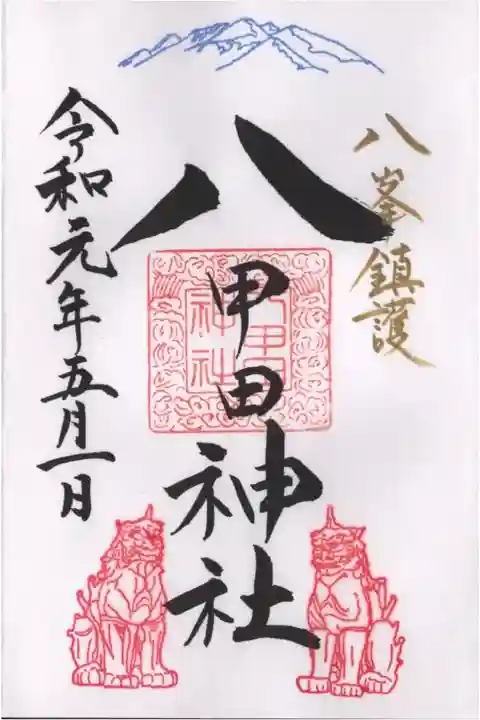 八峯鎮護
八甲田神社
八甲田
神社
令和元年五月一日